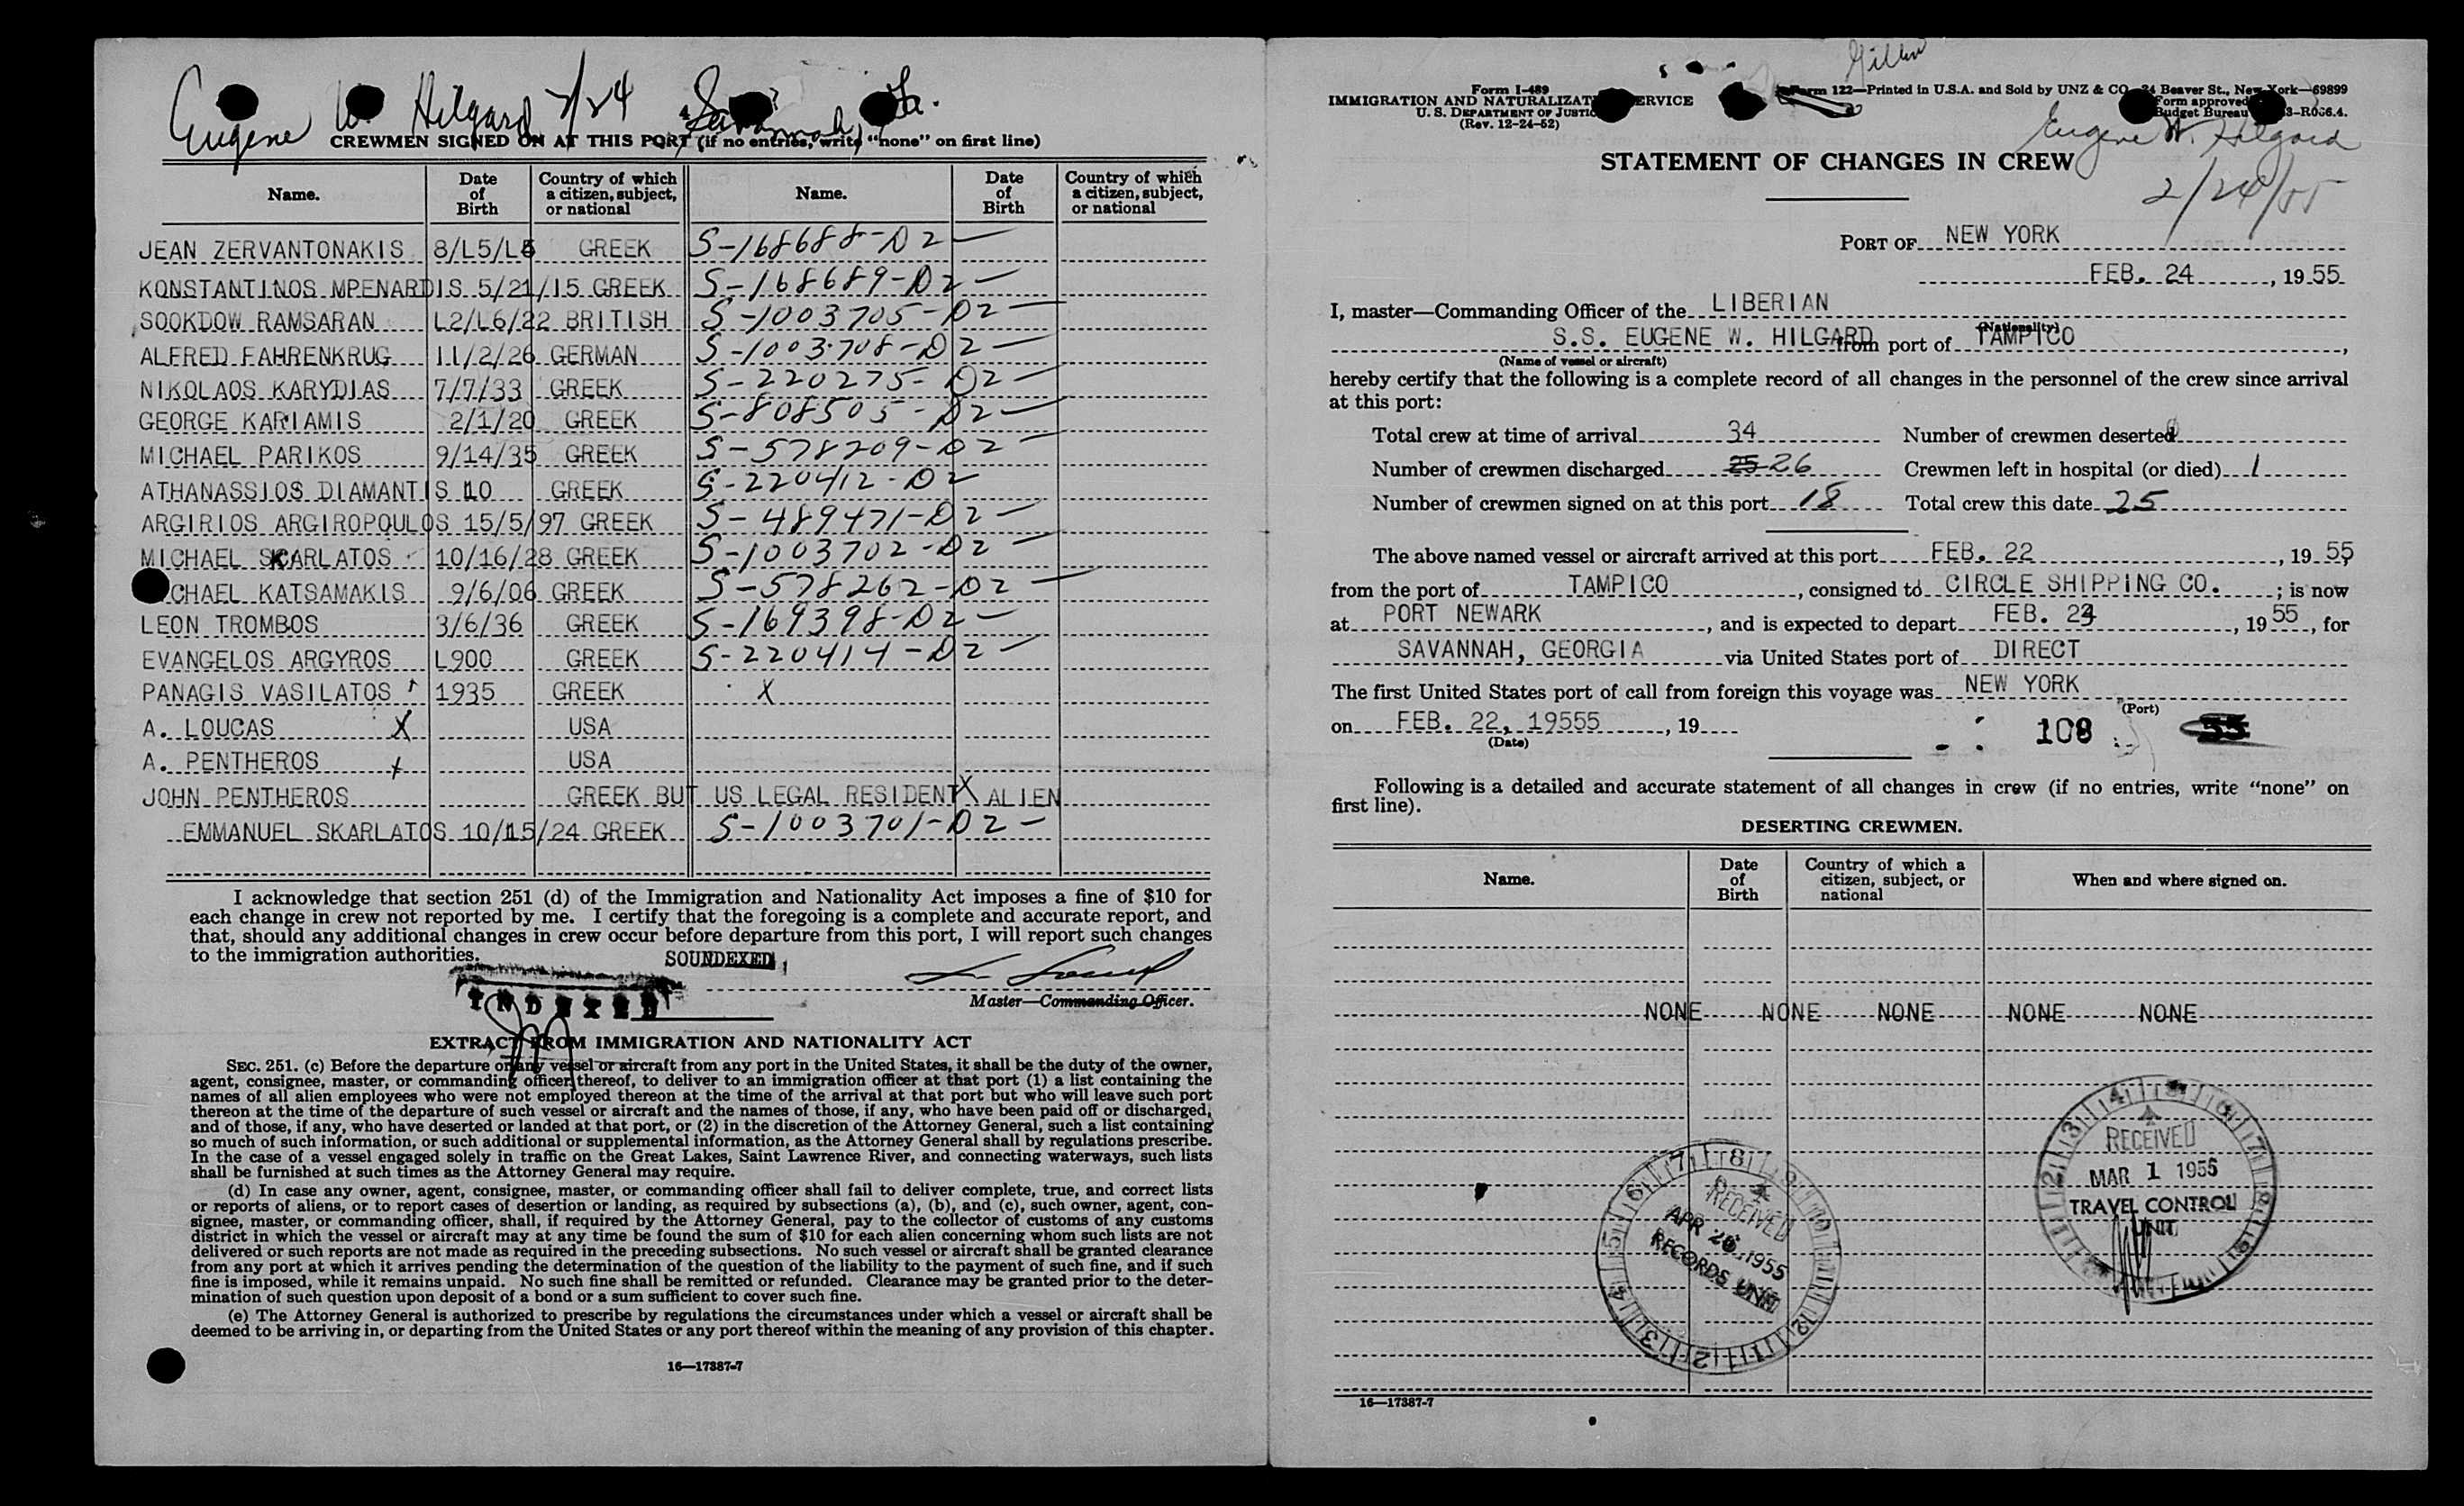 Eugene W. Hilgard 2/24 Savannah, Ga.
CREWMEN SIGNED ON AT THIS PORT (if no entries, write "none" on first line)
Name. Date of Birth Country of which a citizen, subject, or national Name. Date of Birth Country of which a citizen, subject, or national
JEAN ZERVANTONAKIS 8/L5/L5 GREEK S-168688-D2
KONSTANTINOS MPENARDIS 5/21/15 GREEK S-168689-D2
SOOKDOW RAMSARAN L2/L6/22 BRITISH S-1003705-D2
ALFRED FAHRENKRUG 11/2/26 GERMAN S-1003708-D2
NIKOLAOS KARYDIAS 7/7/33 GREEK S-220275-D2
GEORGE KARIAMIS 2/1/20 GREEK S-808505-D2
MICHAEL PARIKOS 9/14/35 GREEK S-578209-D2
ATHANASSIOS DIAMANTIS 10 GREEK S-220412-D2
ARGIRIOS ARGIROPOULOS 15/5/97 GREEK S-489471-D2
MICHAEL SKARLATOS 10/16/28 GREEK S-1003702-D2
CHAEL KATSAMAKIS 9/6/06 GREEK S-578262-D2
LEON TROMBOS 3/6/36 GREEK S-169398-D2
EVANGELOS ARGYROS L900 GREEK S-220414-D2
PANAGIS VASILATOS 1935 GREEK X
A. LOUCAS X USA
A. PENTHEROS X USA
JOHN PENTHEROS GREEK BUT US LEGAL RESIDENT X ALIEN
EMMANUEL SKARLATOS 10/15/24 GREEK S-1003701-D2
I acknowledge that section 251 (d) of the Immigration and Nationality Act imposes a fine of $10 for
each change in crew not reported by me. I certify that the foregoing is a complete and accurate report, and
that, should any additional changes in crew occur before departure from this port, I will report such changes
to the immigration authorities.
SOUNDEXED
INDEXED
Master—Commanding Officer.
EXTRACT FROM IMMIGRATION AND NATIONALITY ACT
SEC. 251. (c) Before the departure of any vessel or aircraft from any port in the United States, it shall be the duty of the owner,
agent, consignee, master, or commanding officer thereof, to deliver to an immigration officer at that port (1) a list containing the
names of all alien employees who were not employed thereon at the time of the arrival at that port but who will leave such port
thereon at the time of the departure of such vessel or aircraft and the names of those, if any, who have been paid off or discharged,
and of those, if any, who have deserted or landed at that port, or (2) in the discretion of the Attorney General, such a list containing
so much of such information, or such additional or supplemental information, as the Attorney General shall by regulations prescribe.
In the case of a vessel engaged solely in traffic on the Great Lakes, Saint Lawrence River, and connecting waterways, such lists
shall be furnished at such times as the Attorney General may require.
(d) In case any owner, agent, consignee, master, or commanding officer shall fail to deliver complete, true, and correct lists
or reports of aliens, or to report cases of desertion or landing, as required by subsections (a), (b), and (c), such owner, agent, con-
signee, master, or commanding officer, shall, if required by the Attorney General, pay to the collector of customs of any customs
district in which the vessel or aircraft may at any time be found the sum of $10 for each alien concerning whom such lists are not
delivered or such reports are not made as required in the preceding subsections. No such vessel or aircraft shall be granted clearance
from any port at which it arrives pending the determination of the question of the liability to the payment of such fine, and if such
fine is imposed, while it remains unpaid. No such fine shall be remitted or refunded. Clearance may be granted prior to the deter-
mination of such question upon deposit of a bond or a sum sufficient to cover such fine.
(e) The Attorney General is authorized to prescribe by regulations the circumstances under which a vessel or aircraft shall be
deemed to be arriving in, or departing from the United States or any port thereof within the meaning of any provision of this chapter.
16—17387-7
Form I-489
IMMIGRATION AND NATURALIZATION SERVICE
U. S. DEPARTMENT OF JUSTICE
(Rev. 12-24-52)
Form 122—Printed in U.S.A. and Sold by UNZ & CO. 24 Beaver St., New York—69899
Form approved
Budget Bureau 3-R066.4.
Eugene W. Hilgard
2/24/55
STATEMENT OF CHANGES IN CREW
PORT OF NEW YORK
FEB. 24, 1955
I, master—Commanding Officer of the LIBERIAN
(Nationality)
S.S. EUGENE W. HILGARD from port of TAMPICO,
(Name of vessel or aircraft)
hereby certify that the following is a complete record of all changes in the personnel of the crew since arrival
at this port:
Total crew at time of arrival 34 Number of crewmen deserted 0
Number of crewmen discharged 25 26 Crewmen left in hospital (or died) 1
Number of crewmen signed on at this port 18 Total crew this date 25
The above named vessel or aircraft arrived at this port FEB. 22, 1955,
from the port of TAMPICO, consigned to CIRCLE SHIPPING CO.; is now
at PORT NEWARK, and is expected to depart FEB. 24, 1955, for
SAVANNAH, GEORGIA via United States port of DIRECT
The first United States port of call from foreign this voyage was NEW YORK
(Port)
on FEB. 22, 19555, 19
(Date)
108 55
Following is a detailed and accurate statement of all changes in crew (if no entries, write "none" on
first line).
DESERTING CREWMEN.
Name. Date of Birth Country of which a citizen, subject, or national When and where signed on.
NONE NONE NONE NONE NONE
RECEIVED
MAR 1 1955
TRAVEL CONTROL
UNIT
RECEIVED
APR 26 1955
RECORDS UNIT
16—17387-7